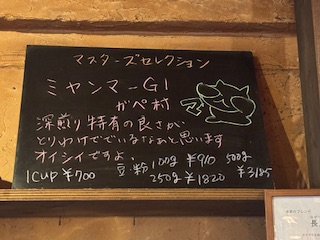 マスターズセレクション
ミャンマーG1
がペ村
深煎り特有の良さが、
とりわけでているなぁと思います
オイシイですよ。
1CUP ¥700
豆・粉 100g ¥910 500g
250g ¥1820 ¥3185